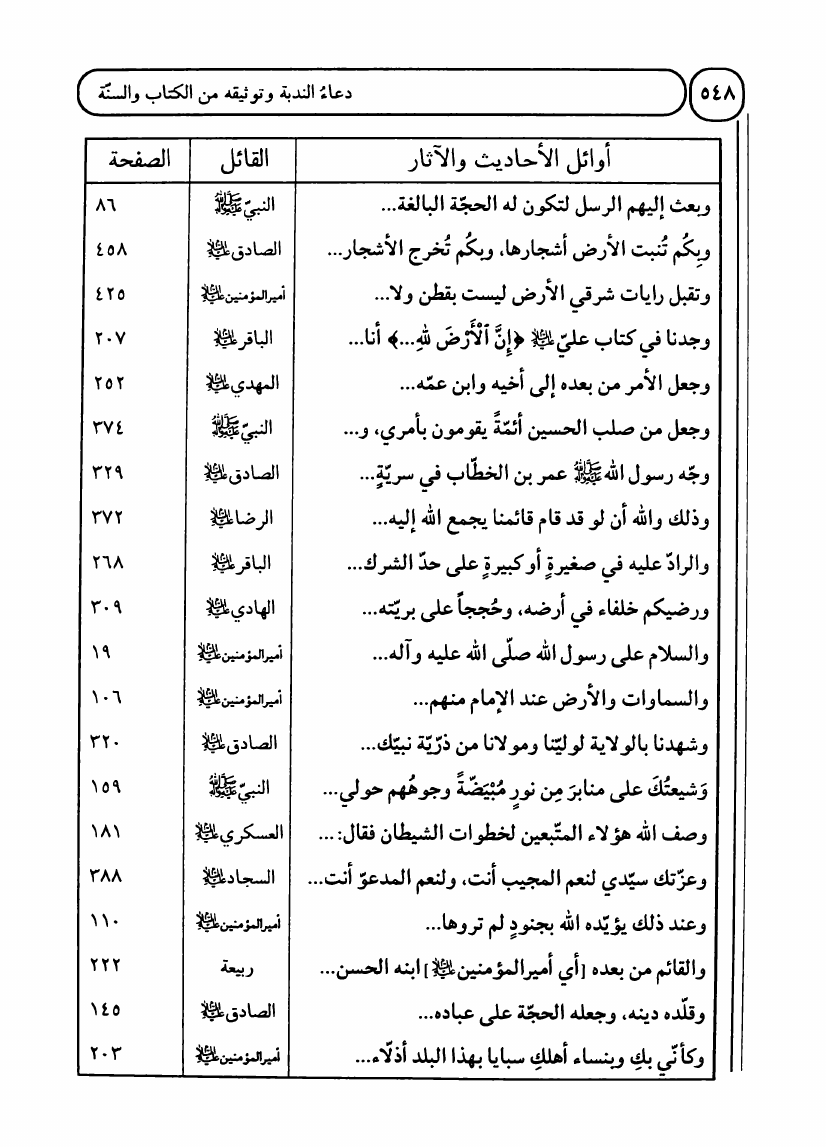 ٥٤٨ دعاءُ الندبة وتوثيقه من الكتاب والسنّة
أوائل الأحاديث والآثار القائل الصفحة
وبعث إليهم الرسل لتكون له الحجّة البالغة... النبيّ ﷺ ٨٦
وبِكُم تُنبت الأرض أشجارها، وبكُم تُخرج الأشجار... الصادق عليه السلام ٤٥٨
وتقبل رايات شرقي الأرض ليست بقطن ولا... أميرالمؤمنين عليه السلام ٤٢٥
وجدنا في كتاب عليّ عليه السلام ﴿إِنَّ ٱلْأَرْضَ لِلّٰهِ...﴾ أنا... الباقر عليه السلام ٢٠٧
وجعل الأمر من بعده إلى أخيه وابن عمّه... المهدي عليه السلام ٢٥٢
وجعل من صلب الحسين أئمّةً يقومون بأمري، و... النبيّ ﷺ ٣٧٤
وجّه رسول الله ﷺ عمر بن الخطّاب في سريّةٍ... الصادق عليه السلام ٣٢٩
وذلك والله أن لو قد قام قائمنا يجمع الله إليه... الرضا عليه السلام ٣٧٢
والرادّ عليه في صغيرةٍ أو كبيرةٍ على حدّ الشرك... الباقر عليه السلام ٢٦٨
ورضيكم خلفاء في أرضه، وحُججاً على بريّته... الهادي عليه السلام ٣٠٩
والسلام على رسول الله صلّى الله عليه وآله... أميرالمؤمنين عليه السلام ١٩
والسماوات والأرض عند الإمام منهم... أميرالمؤمنين عليه السلام ١٠٦
وشهدنا بالولاية لوليّنا ومولانا من ذرّيّة نبيّك... الصادق عليه السلام ٣٢٠
وَشيعتُكَ على منابرَ مِن نورٍ مُبْيَضّةً وجوهُهم حولي... النبيّ ﷺ ١٥٩
وصف الله هؤلاء المتّبعين لخطوات الشيطان فقال:... العسكري عليه السلام ١٨١
وعزّتك سيّدي لنعم المجيب أنت، ولنعم المدعوّ أنت... السجاد عليه السلام ٣٨٨
وعند ذلك يؤيّده الله بجنودٍ لم تروها... أميرالمؤمنين عليه السلام ١١٠
والقائم من بعده [أي أميرالمؤمنين عليه السلام] ابنه الحسن... ربيعة ٢٢٢
وقلّده دينه، وجعله الحجّة على عباده... الصادق عليه السلام ١٤٥
وكأنّي بكِ وبنساء أهلكِ سبايا بهذا البلد أذلّاء... أميرالمؤمنين عليه السلام ٢٠٣